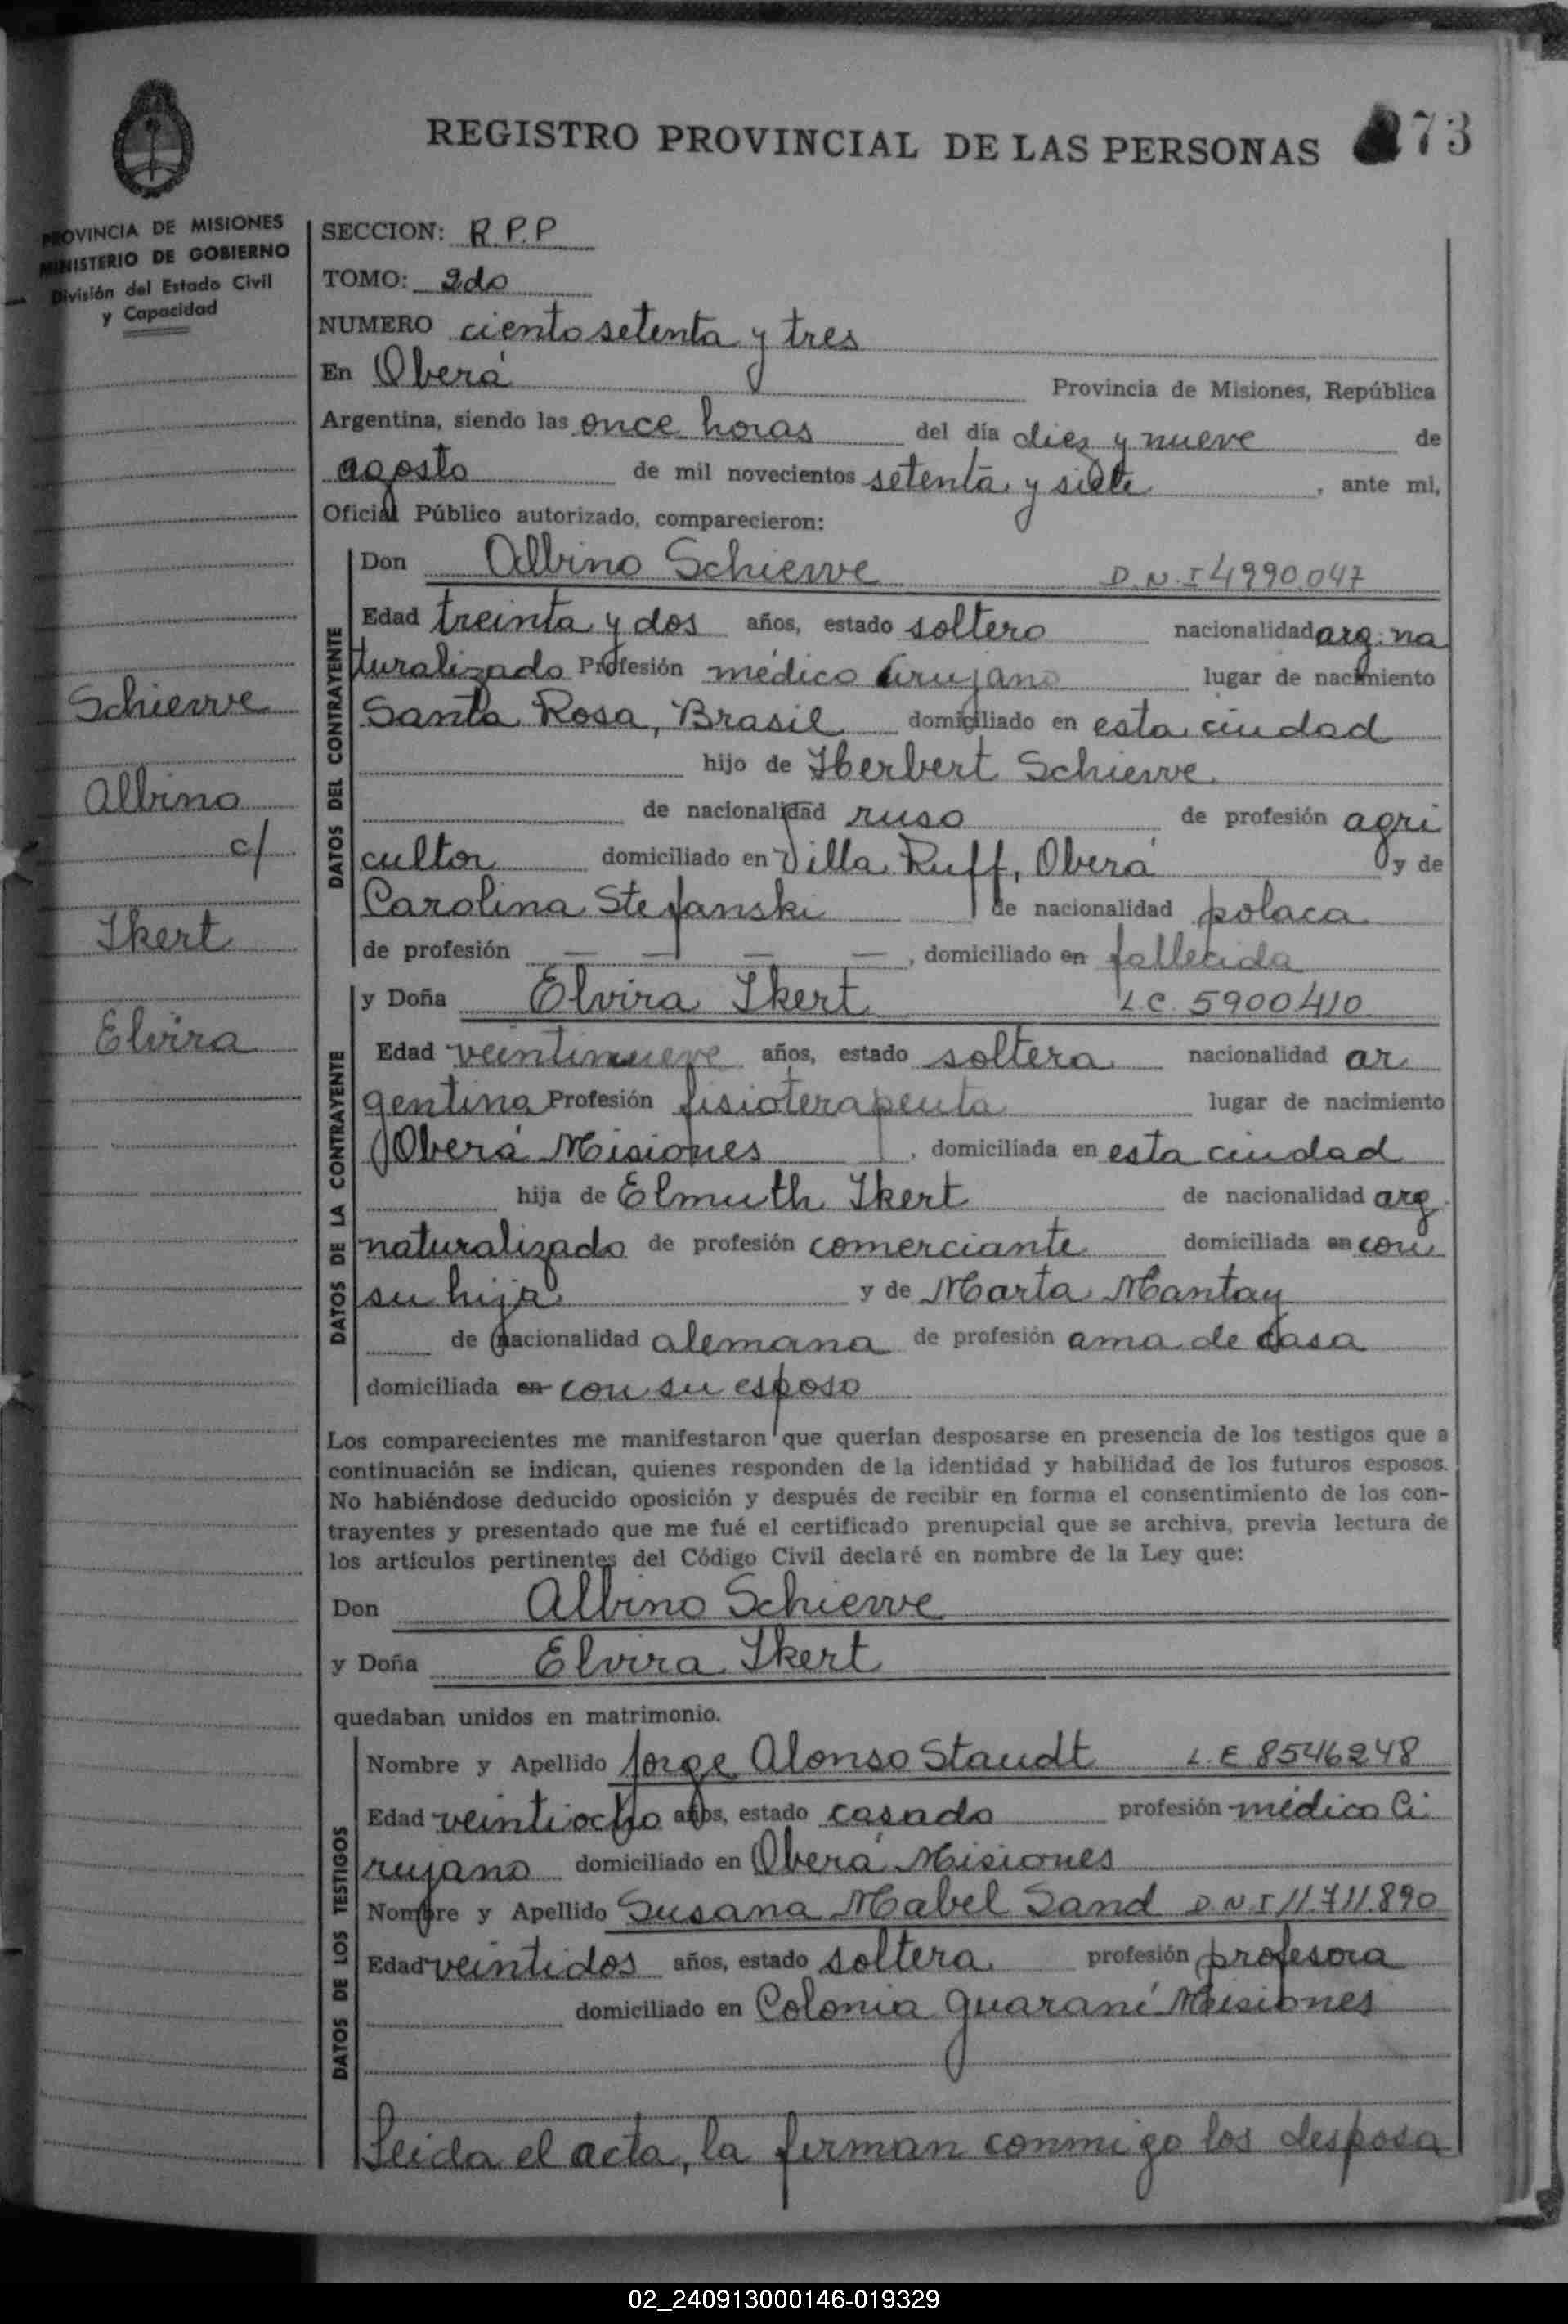 REGISTRO PROVINCIAL DE LAS PERSONAS 173
PROVINCIA DE MISIONES
MINISTERIO DE GOBIERNO
División del Estado Civil
y Capacidad
Schierve
Albino
c/
Ikert
Elvira
SECCION: R.P.P
TOMO: 2do
NUMERO ciento setenta y tres
En Oberá Provincia de Misiones, República
Argentina, siendo las once horas del día diez y nueve de
agosto de mil novecientos setenta y siete, ante mi,
Oficial Público autorizado, comparecieron:
DATOS DEL CONTRAYENTE
Don Albino Schierve D.N.I 4990.047
Edad treinta y dos años, estado soltero nacionalidad arg. na
turalizado Profesión médico Cirujano lugar de nacimiento
Santa Rosa, Brasil domiciliado en esta ciudad
hijo de Herbert Schierve
de nacionalidad ruso de profesión agri
cultor domiciliado en Villa Ruff, Oberá y de
Carolina Stefanski de nacionalidad polaca
de profesión — — — —, domiciliado en fallecida
DATOS DE LA CONTRAYENTE
y Doña Elvira Ikert L.C. 5900410
Edad veintinueve años, estado soltera nacionalidad ar
gentina Profesión fisioterapeuta lugar de nacimiento
Oberá Misiones, domiciliada en esta ciudad
hija de Elmuth Ikert de nacionalidad arg.
naturalizado de profesión comerciante domiciliada en con
su hija y de Marta Mantay
de nacionalidad alemana de profesión ama de casa
domiciliada en con su esposo
Los comparecientes me manifestaron que querían desposarse en presencia de los testigos que a
continuación se indican, quienes responden de la identidad y habilidad de los futuros esposos.
No habiéndose deducido oposición y después de recibir en forma el consentimiento de los con-
trayentes y presentado que me fué el certificado prenupcial que se archiva, previa lectura de
los artículos pertinentes del Código Civil declaré en nombre de la Ley que:
Don Albino Schierve
y Doña Elvira Ikert
quedaban unidos en matrimonio.
DATOS DE LOS TESTIGOS
Nombre y Apellido Jorge Alonso Staudt L.E 8546248
Edad veintiocho años, estado casado profesión médico Ci
rujano domiciliado en Oberá Misiones
Nombre y Apellido Susana Mabel Sand D.N.I 11.711.890
Edad veintidos años, estado soltera profesión profesora
domiciliado en Colonia Guaraní Misiones
Leida el acta, la firman conmigo los desposa
02_240913000146-019329